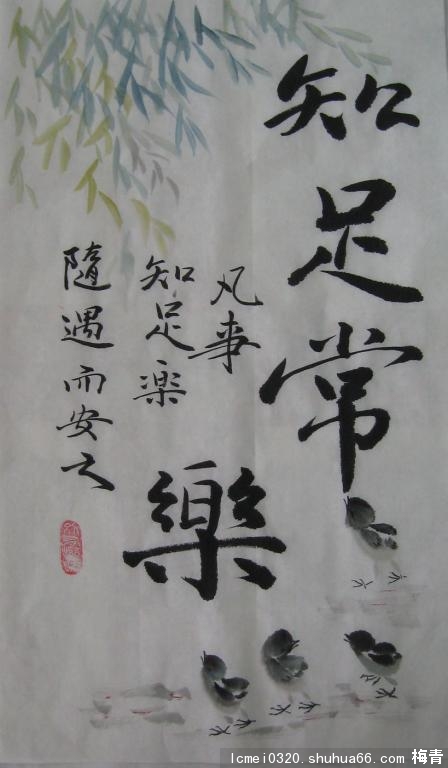 知足常
樂
凡事
知足樂
隨遇而安之
lcmei0320.shuhua66.com 梅青